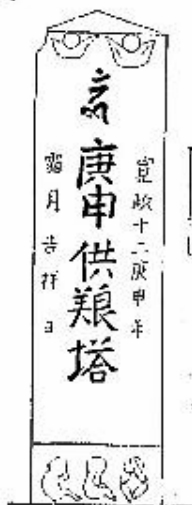 寛政十二庚申年
庚申供養塔
霜月吉祥日